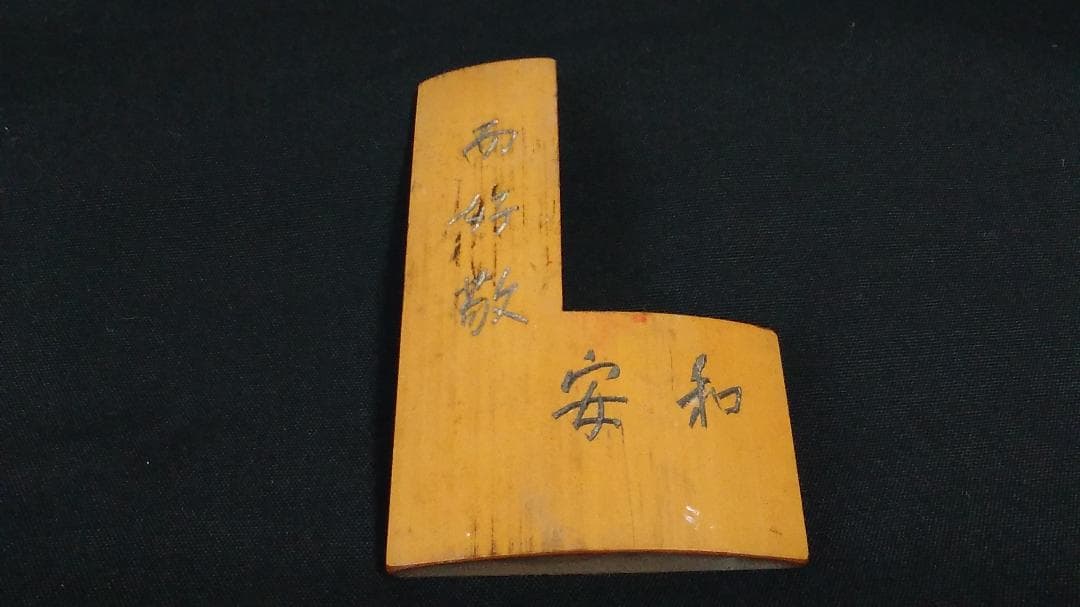 和安
而好敬